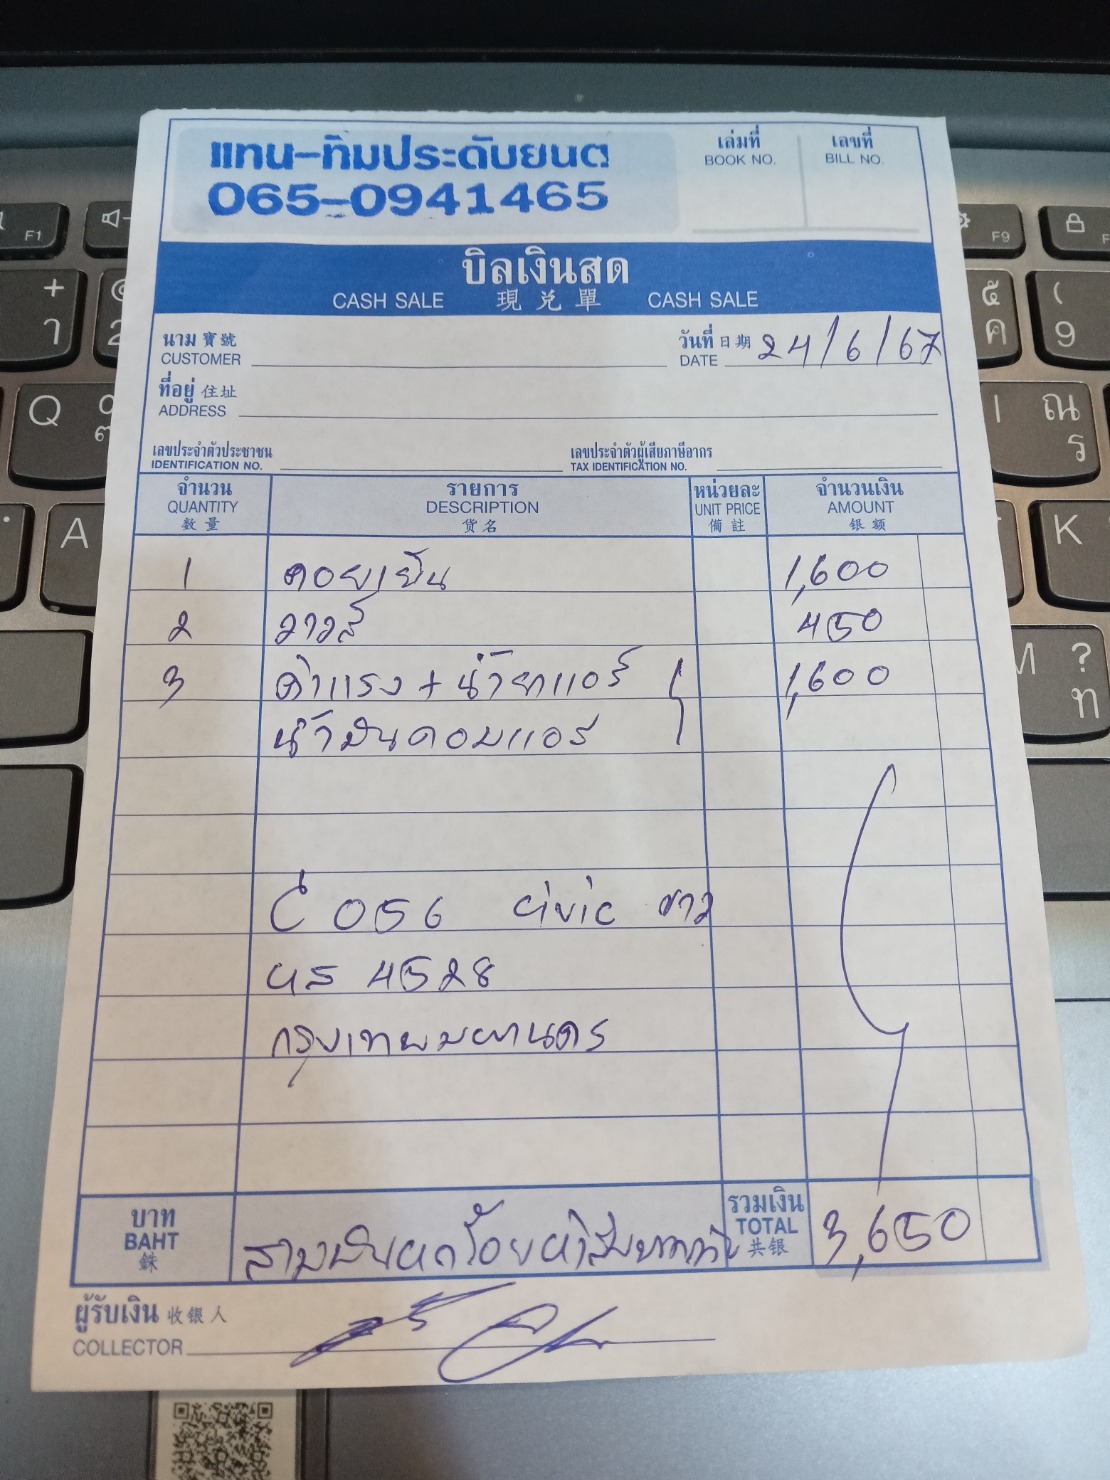 แทน-ทิมประดับยนต์
065-0941465
เล่มที่ เลขที่
BOOK NO. BILL NO.
บิลเงินสด
CASH SALE 現兑單 CASH SALE
นาม 寶號 วันที่ 日期 24/6/67
CUSTOMER DATE
ที่อยู่ 住址
ADDRESS
เลขประจำตัวประชาชน เลขประจำตัวผู้เสียภาษีอากร
IDENTIFICATION NO. TAX IDENTIFICATION NO.
จำนวน รายการ หน่วยละ จำนวนเงิน
QUANTITY DESCRIPTION UNIT PRICE AMOUNT
数量 货名 備註 银额
1 คอยเย็น 1,600
2 วาวส์ 450
3 ค่าแรง + น้ำยาแอร์ 1,600
น้ำมันคอมแอร์
056 civic ขาว
4528
กรุงเทพมหานคร
บาท รวมเงิน
BAHT สามพันหกร้อยห้าสิบบาทถ้วน TOTAL 3,650
銖 共银
ผู้รับเงิน 收银人
COLLECTOR
F1
F9
+
Q
ๆ
A
K
M
?
ท
ค
9
(
ณ
ร